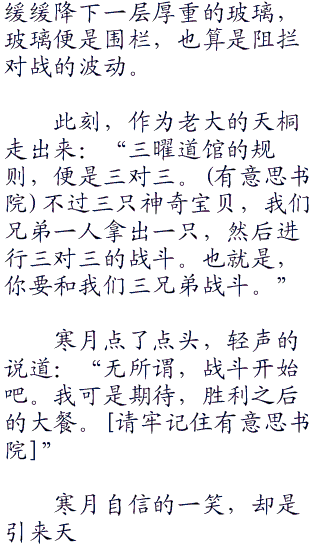 缓缓降下一层厚重的玻璃，
玻璃便是围栏，也算是阻拦
对战的波动。
此刻，作为老大的天桐
走出来：“三曜道馆的规
则，便是三对三。(有意思书
院)不过三只神奇宝贝，我们
兄弟一人拿出一只，然后进
行三对三的战斗。也就是，
你要和我们三兄弟战斗。”
寒月点了点头，轻声的
说道：“无所谓，战斗开始
吧。我可是期待，胜利之后
的大餐。[请牢记住有意思书
院]”
寒月自信的一笑，却是
引来天